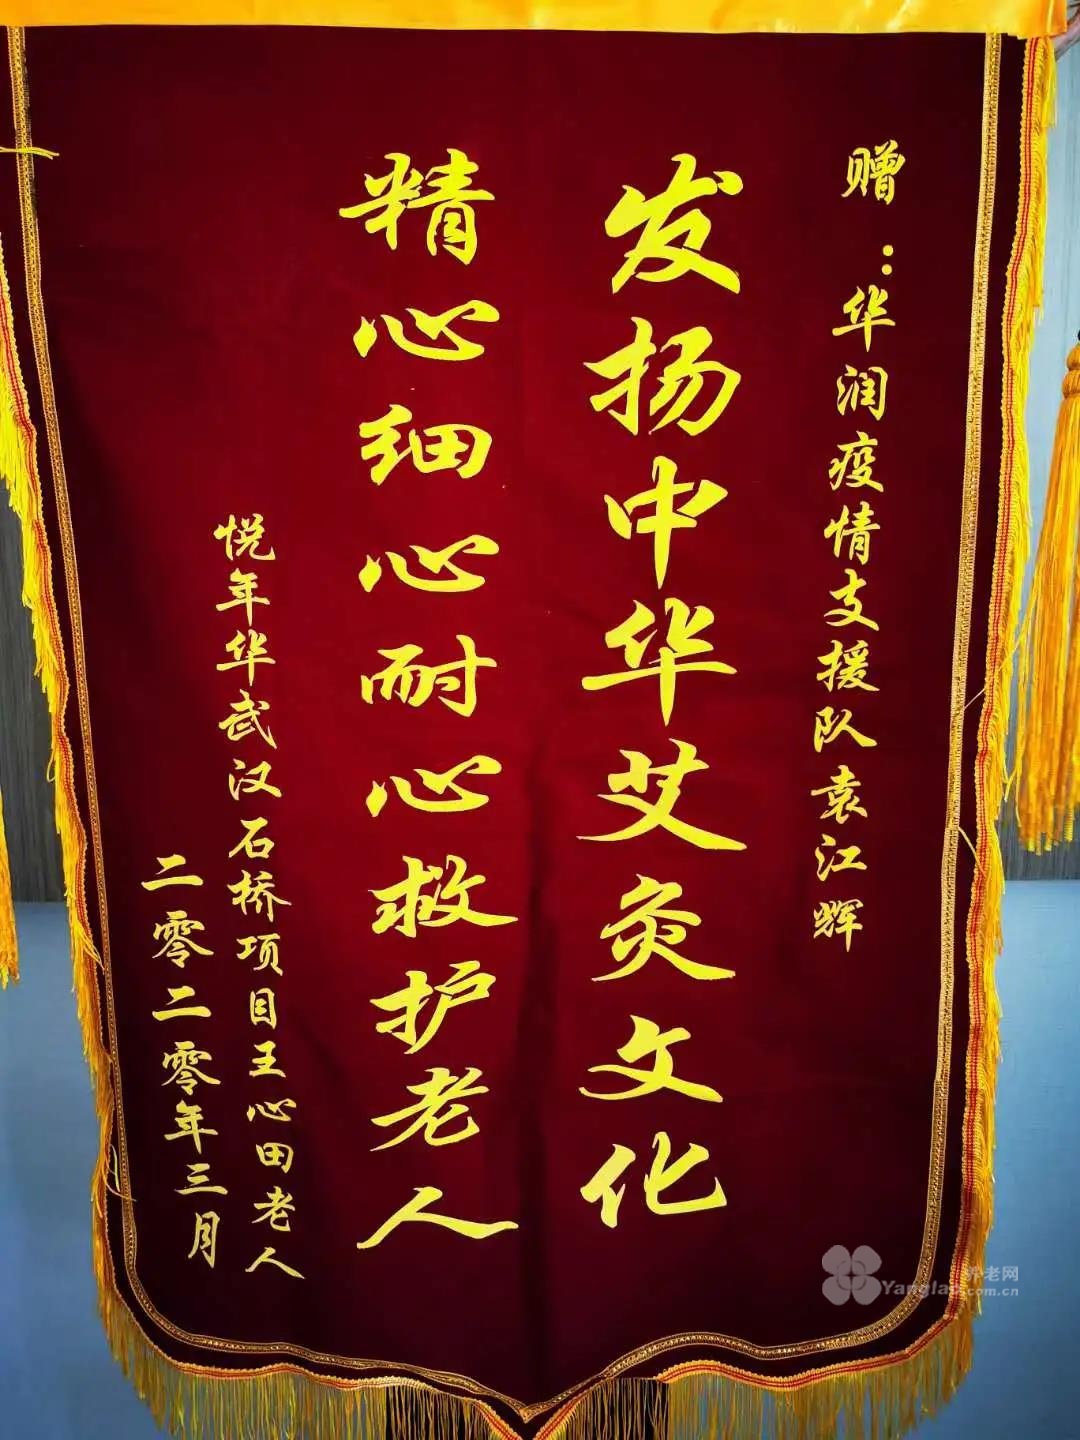 赠：华润疫情支援队袁江辉
发扬中华艾灸文化
精心细心耐心救护老人
悦年华武汉石桥项目王心田老人
二零二零年三月
养老网
Yanglao.com.cn